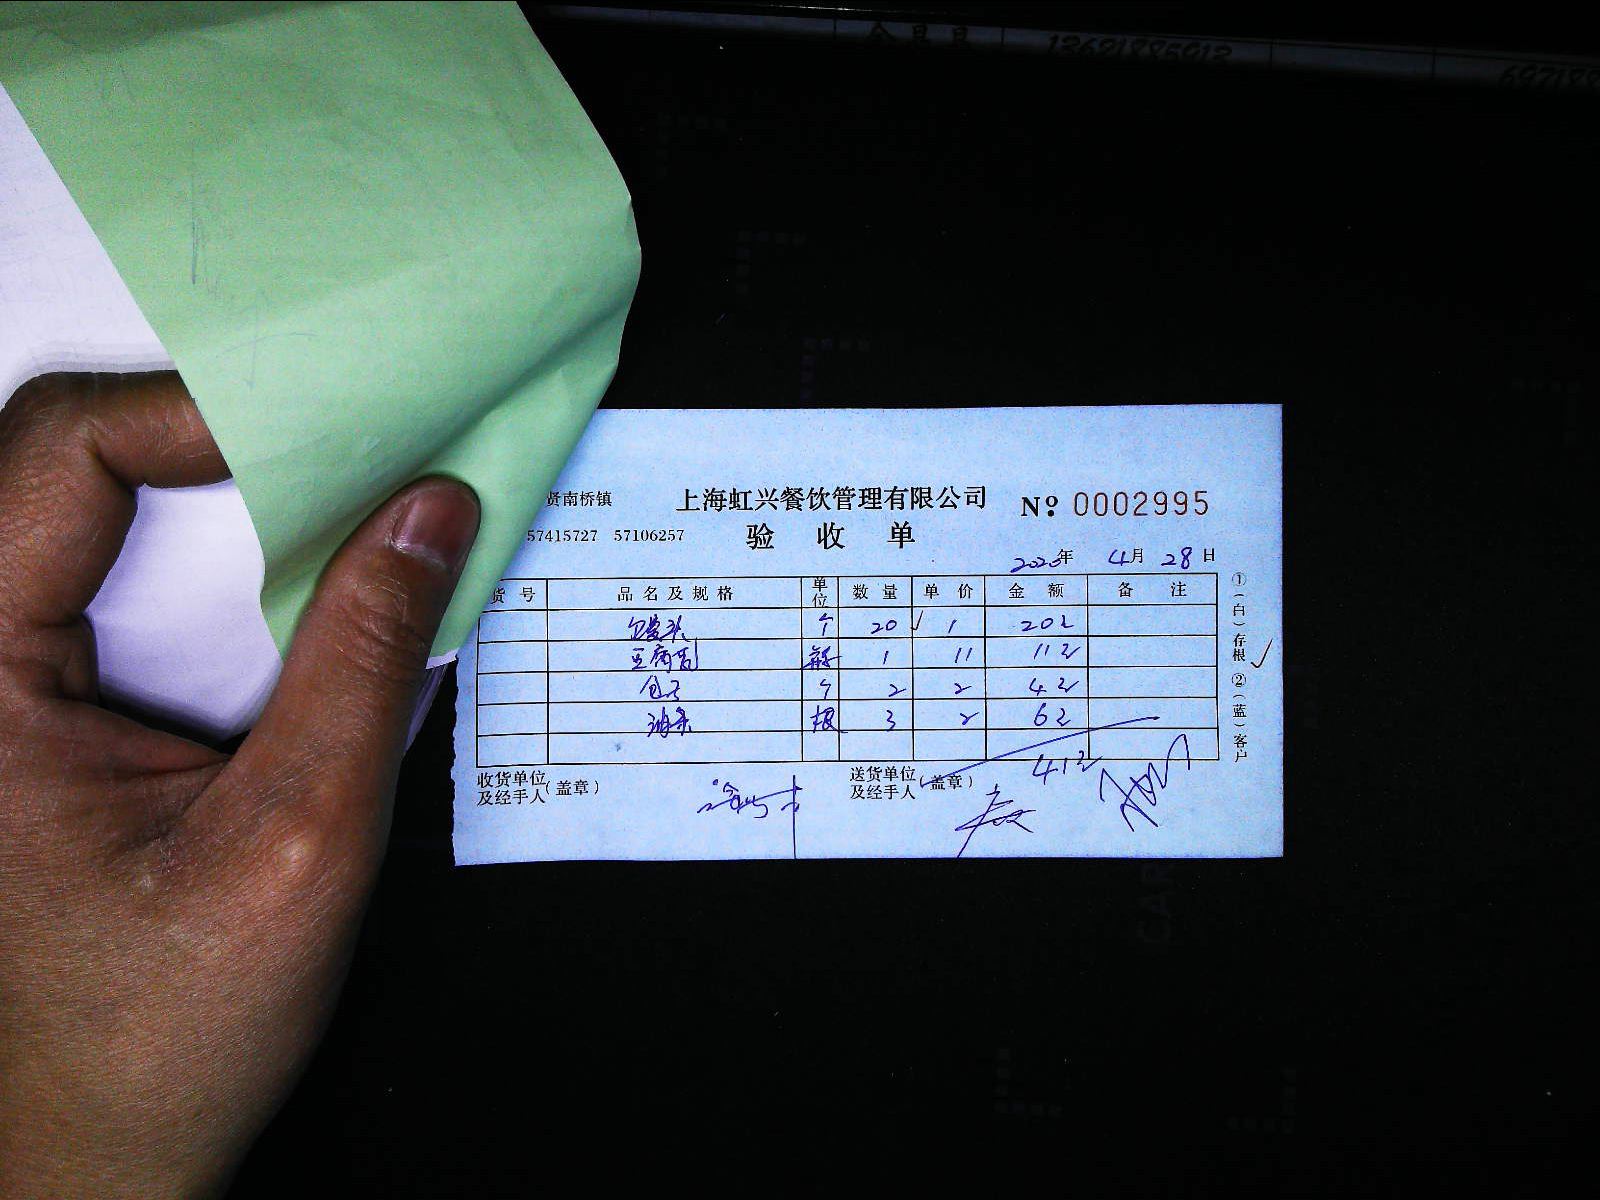 13621885913
贤南桥镇 上海虹兴餐饮管理有限公司 Nº 0002995
57415727 57106257 验 收 单
2020年 4月 28日
货 号 品 名 及 规 格 单位 数 量 单 价 金 额 备 注
馒头 个 20 1 20元
豆腐乳 瓶 1 11 11元
包子 个 2 2 4元
油条 根 3 2 6元
41元
收货单位及经手人(盖章) 送货单位及经手人(盖章)
①(白)存根 ②(蓝)客户